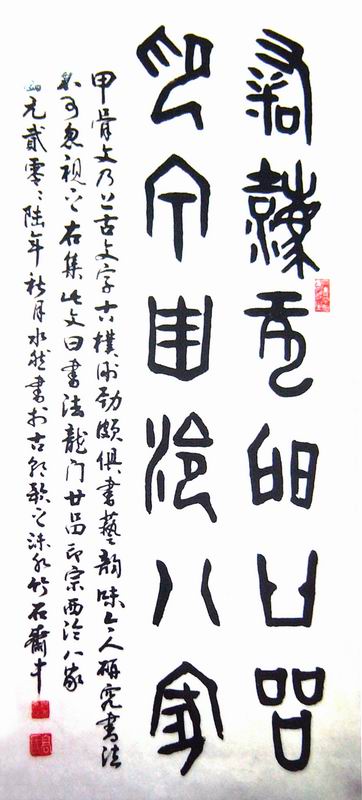 書法龍門廿品
印宗西泠八家
甲骨文乃上古文字古樸勁頗俱書藝韻味令人研究書法
不可忽視之右集此文曰書法龍門廿品印宗西泠八家
公元貳零零陸年秋月水書於古之竹石齋